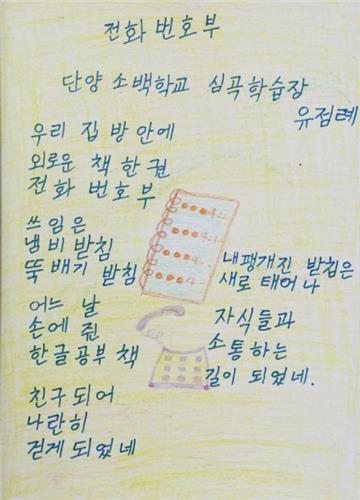 전화 번호부
단양 소백학교 심곡학습장
유점례
우리 집 방안에
외로운 책 한권
전화 번호부
쓰임은
냄비 받침
뚝배기 받침
어느 날
손에 쥔
한글공부 책
친구되어
나란히
걷게되었네
내팽개진 받침은
새로 태어나
자식들과
소통하는
길이 되었네.